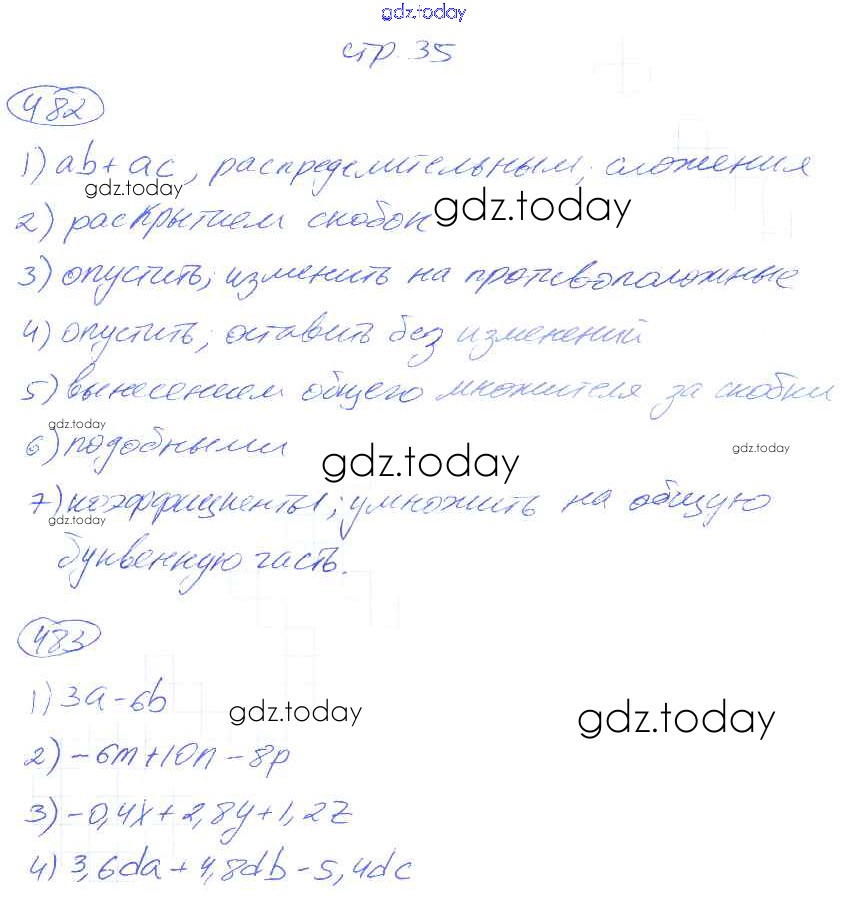 gdz.today
стр. 35
482
1) ab + ac, распределительным; сложения
gdz.today
2) раскрытием скобок
gdz.today
3) опустить; изменить на противоположные
4) опустить; оставить без изменений
5) вынесением общего множителя за скобки
gdz.today
6) подобными
gdz.today
gdz.today
7) коэффициенты; умножить на общую
gdz.today
буквенную часть.
483
1) 3a - 6b
gdz.today
gdz.today
2) -6m + 10n - 8p
3) -0,4x + 2,8y + 1,2z
4) 3,6da + 4,8db - 5,4dc